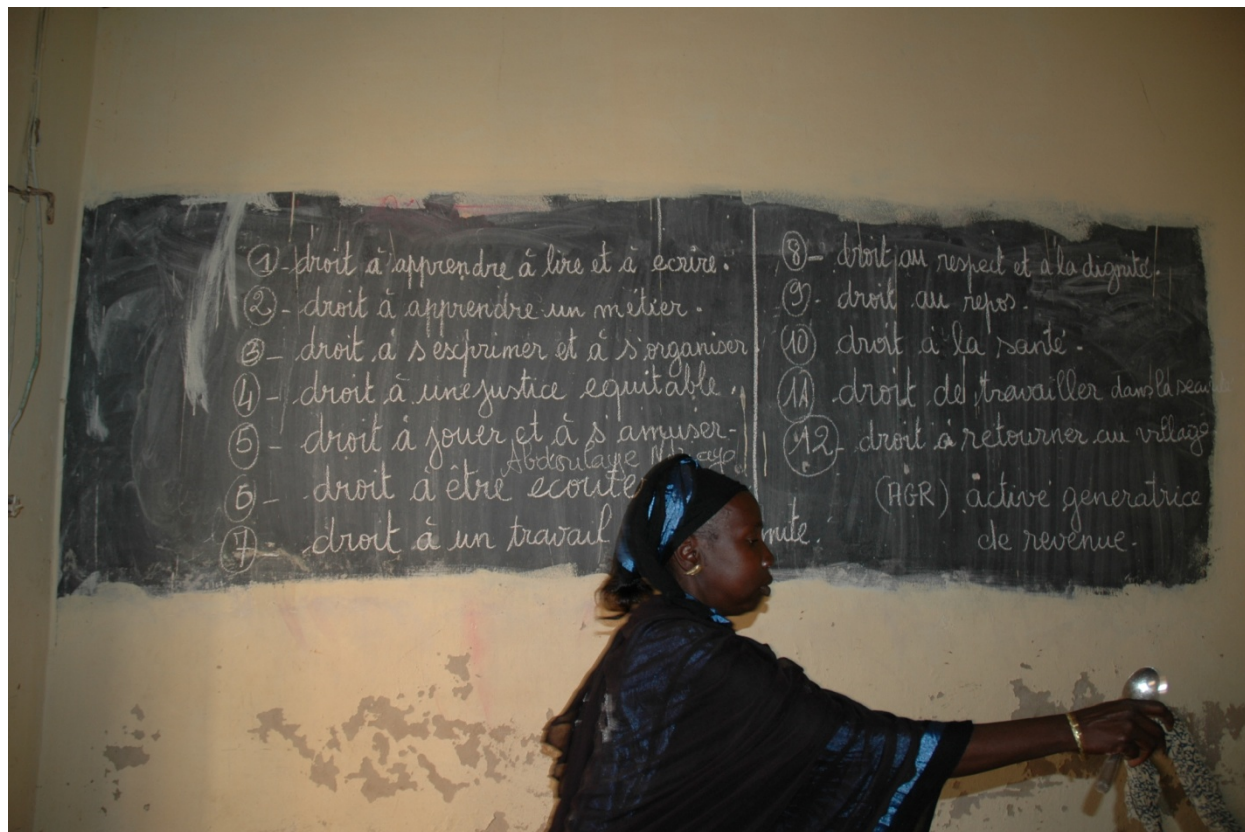 1 - droit à apprendre à lire et à ecrire.
2 - droit à apprendre un métier.
3 - droit à s'exprimer et à s'organiser
4 - droit à une justice equitable.
5 - droit à jouer et à s'amuser -
Abdoulaye
6 - droit à être ecouté
7 - droit à un travail
8 - droit au respect et à la dignité.
9 - droit au repos.
10 droit à la santé.
11 droit de travailler dans la
12 - droit à retourner au village
(AGR) active generatrice
de revenue.